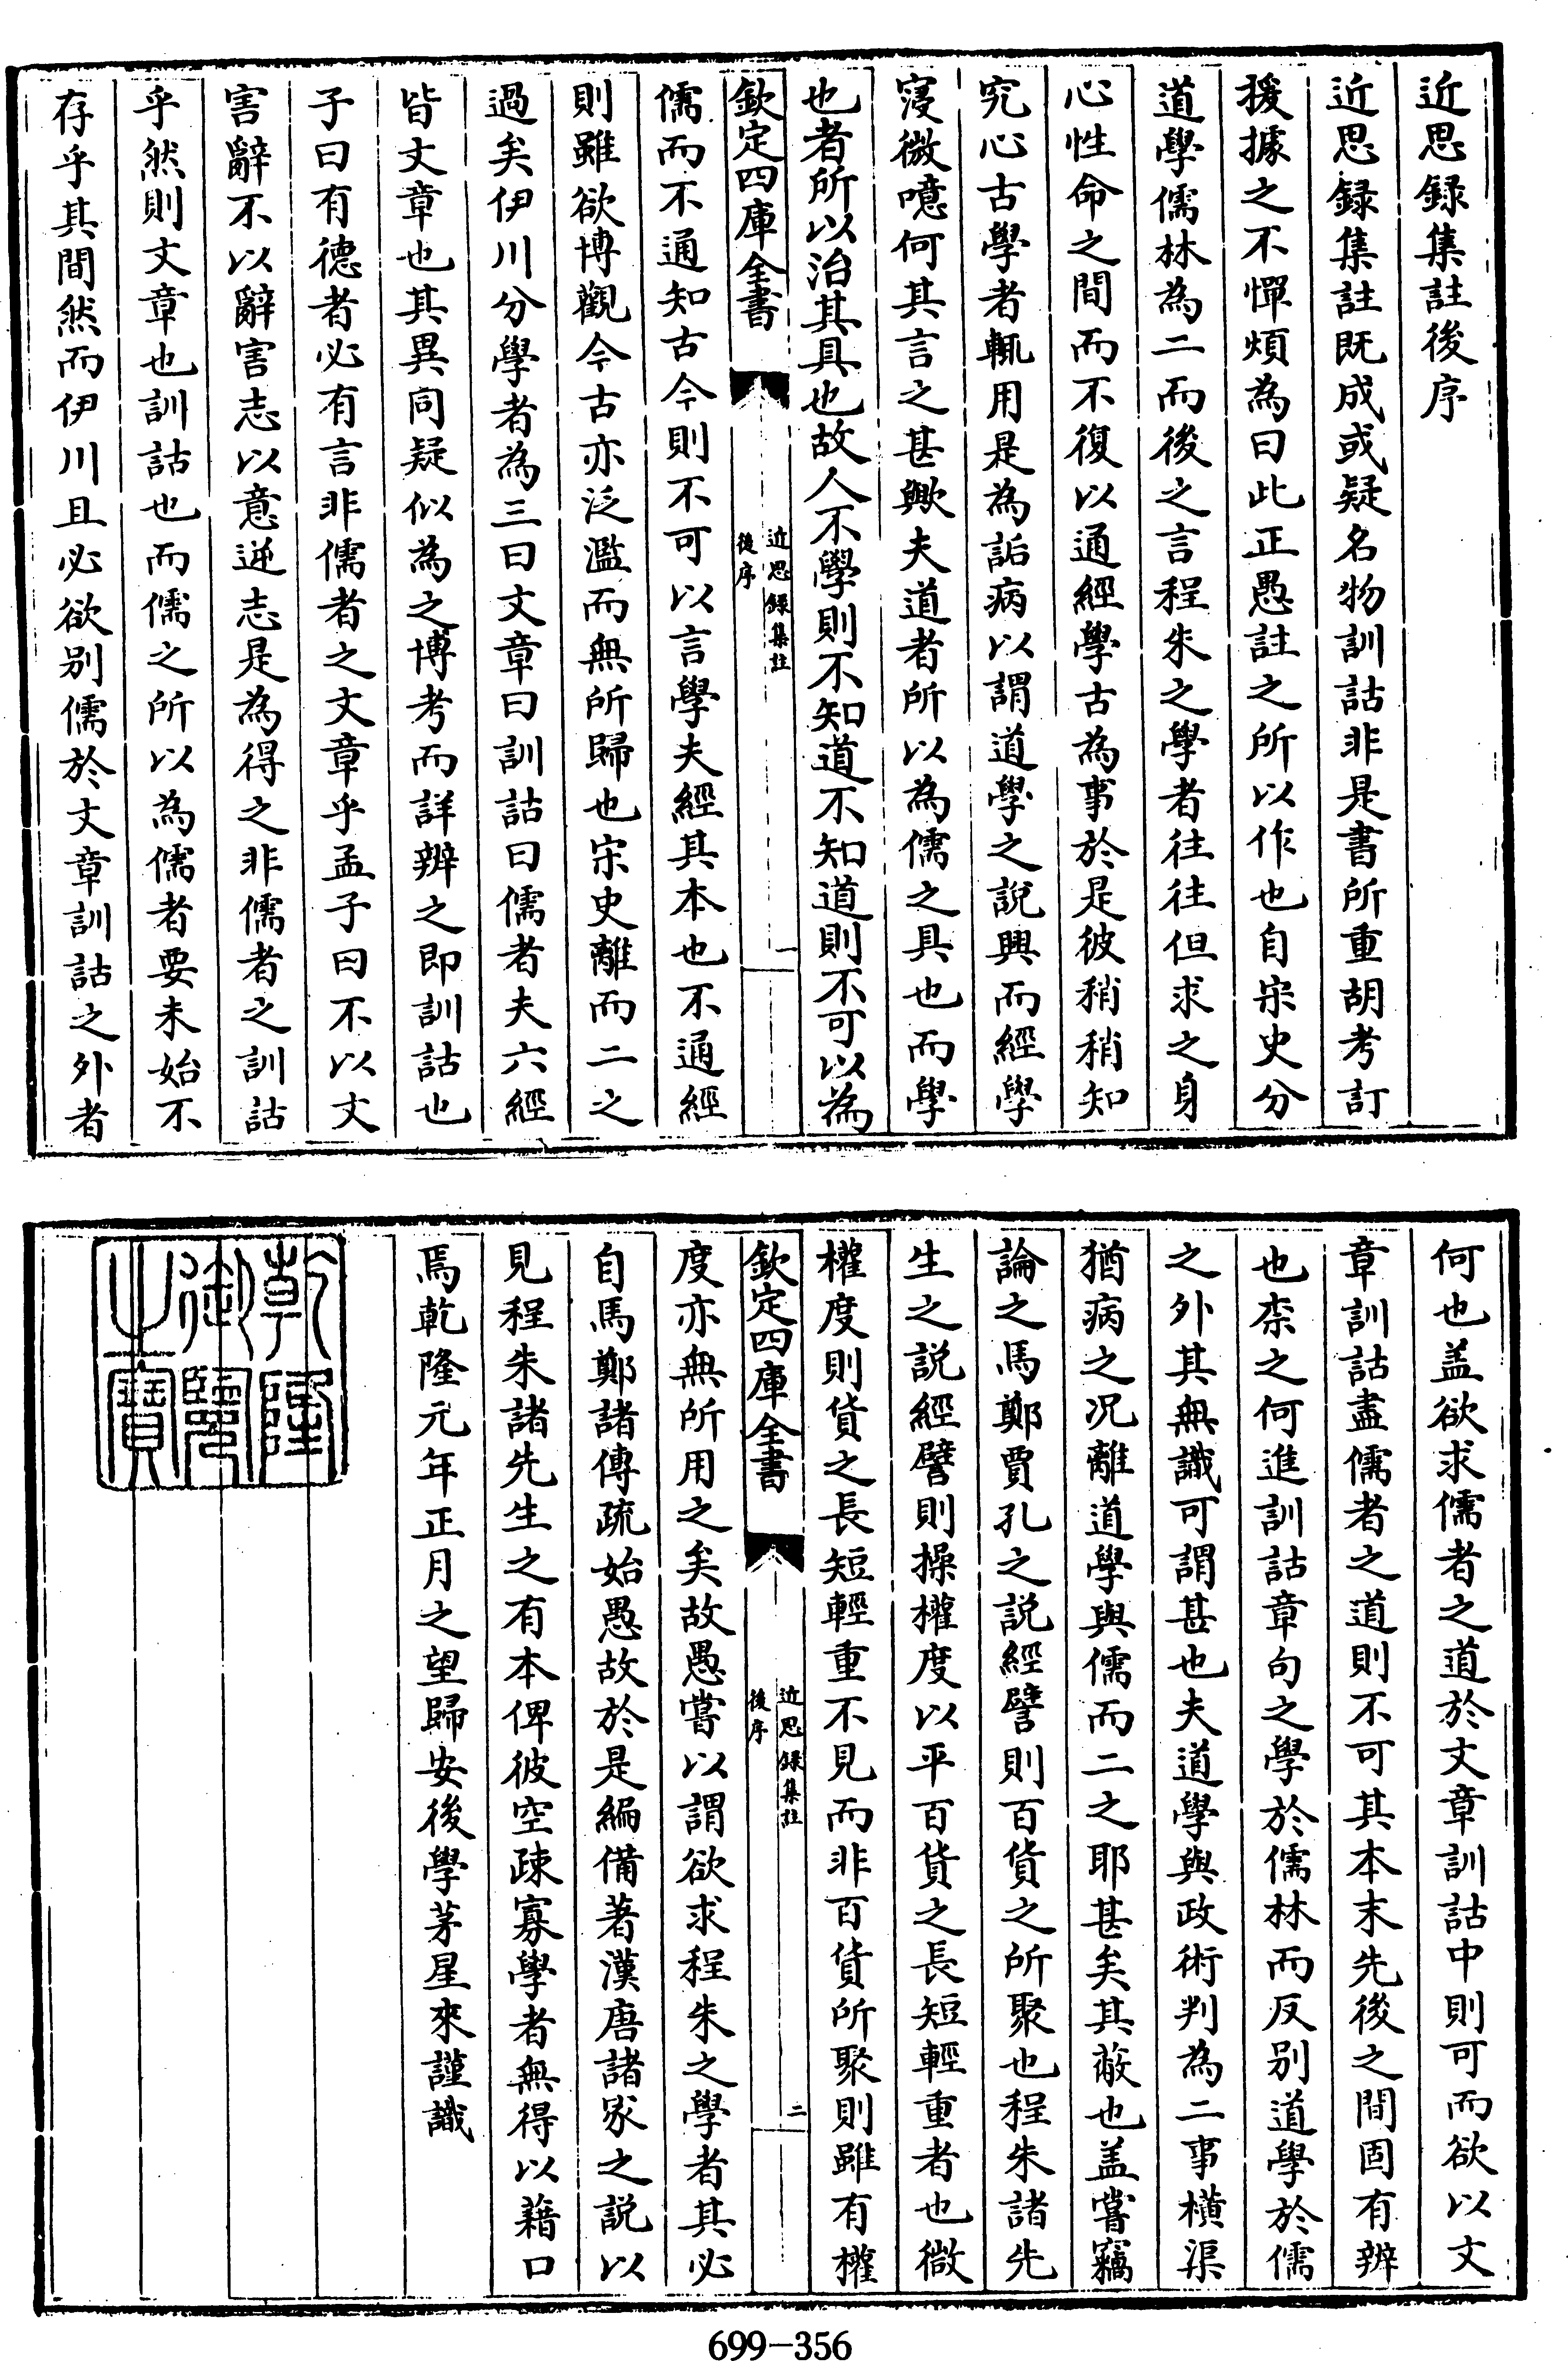 近思録集註後序
近思録集註既成或疑名物訓詁非是書所重胡考訂
援據之不憚煩為曰此正愚註之所以作也自宋史分
道學儒林為二而後之言程朱之學者往往但求之身
心性命之間而不復以通經學古為事於是彼稍稍知
究心古學者輒用是為詬病以謂道學之說興而經學
寖微噫何其言之甚歟夫道者所以為儒之具也而學
也者所以治其具也故人不學則不知道不知道則不可以為
欽定四庫全書
近思録集註
後序
一
儒而不通知古今則不可以言學夫經其本也不通經
則雖欲博觀今古亦泛濫而無所歸也宋史離而二之
過矣伊川分學者為三曰文章曰訓詁曰儒者夫六經
皆文章也其異同疑似為之博考而詳辨之即訓詁也
子曰有德者必有言非儒者之文章乎孟子曰不以文
害辭不以辭害志以意逆志是為得之非儒者之訓詁
乎然則文章也訓詁也而儒之所以為儒者要未始不
存乎其間然而伊川且必欲别儒於文章訓詁之外者
何也盖欲求儒者之道於文章訓詁中則可而欲以文
章訓詁盡儒者之道則不可其本末先後之間固有辨
也柰之何進訓詁章句之學於儒林而反别道學於儒
之外其無識可謂甚也夫道學與政術判為二事横渠
猶病之况離道學與儒而二之耶甚矣其蔽也盖嘗竊
論之馬鄭賈孔之説經譬則百貨之所聚也程朱諸先
生之説經譬則操權度以平百貨之長短輕重者也微
權度則貨之長短輕重不見而非百貨所聚則雖有權
欽定四庫全書
近思録集註
後序
二
度亦無所用之矣故愚嘗以謂欲求程朱之學者其必
自馬鄭諸傳疏始愚故於是編備著漢唐諸家之説以
見程朱諸先生之有本俾彼空疎寡學者無得以藉口
焉乾隆元年正月之望歸安後學茅星來謹識
乾隆
御覽
之寶
699-356